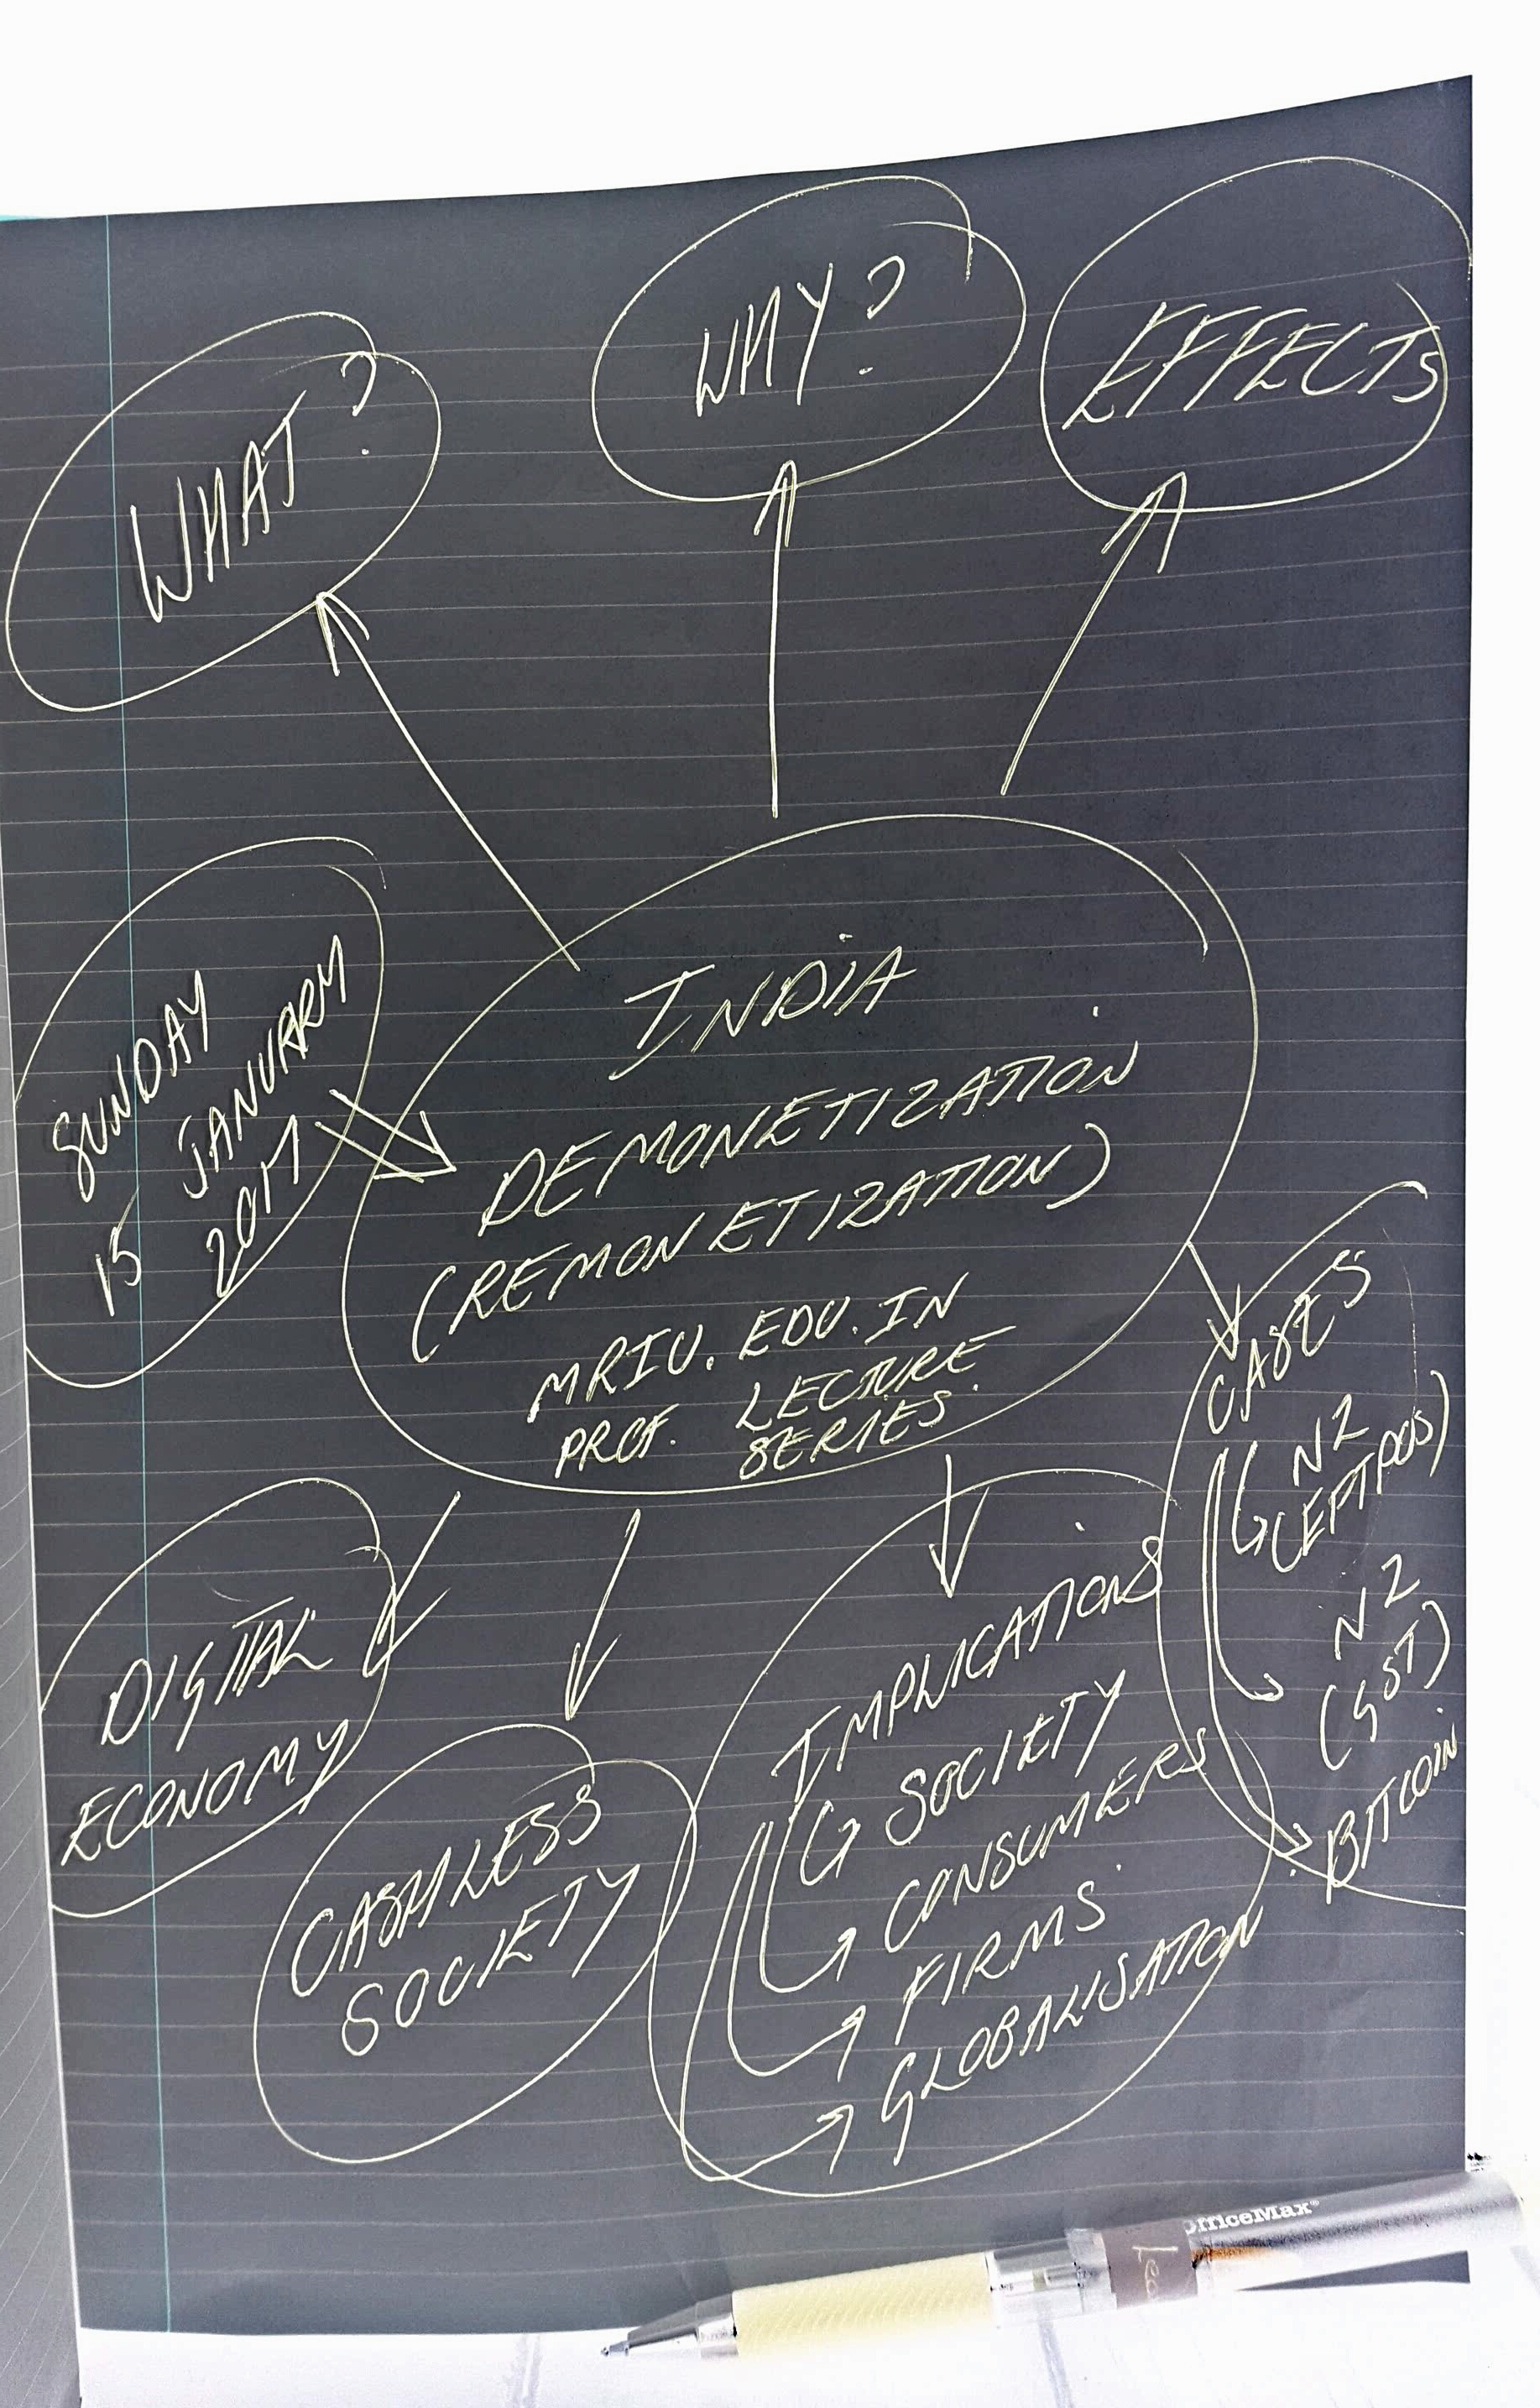 WHAT?
WHY?
EFFECTS
SUNDAY
15 JANUARY
2017
INDIA
DEMONETIZATION
(REMONETIZATION)
MRIU.EDU.IN
PROF. LECTURE
SERIES.
CASES
NZ
(EFTPOS)
NZ
(GST)
BITCOIN
DIGITAL
ECONOMY
CASHLESS
SOCIETY
IMPLICATIONS
SOCIETY
CONSUMERS
FIRMS.
GLOBALISATION
OfficeMax